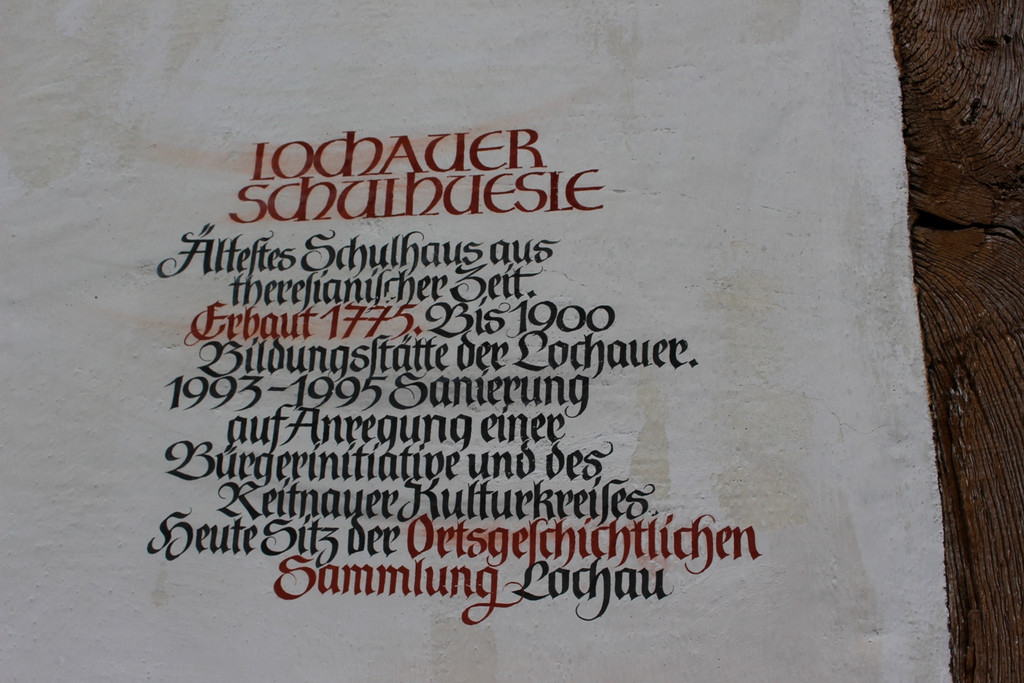 LOCHAUER
SCHULHUESLE
Älteſtes Schulhaus aus
thereſianiſcher Zeit.
Erbaut 1775. Bis 1900
Bildungsſtätte der Lochauer.
1993-1995 Sanierung
auf Anregung einer
Bürgerinitiative und des
Reitnauer Kulturkreiſes.
Heute Sitz der Ortsgeſchichtlichen
Sammlung Lochau